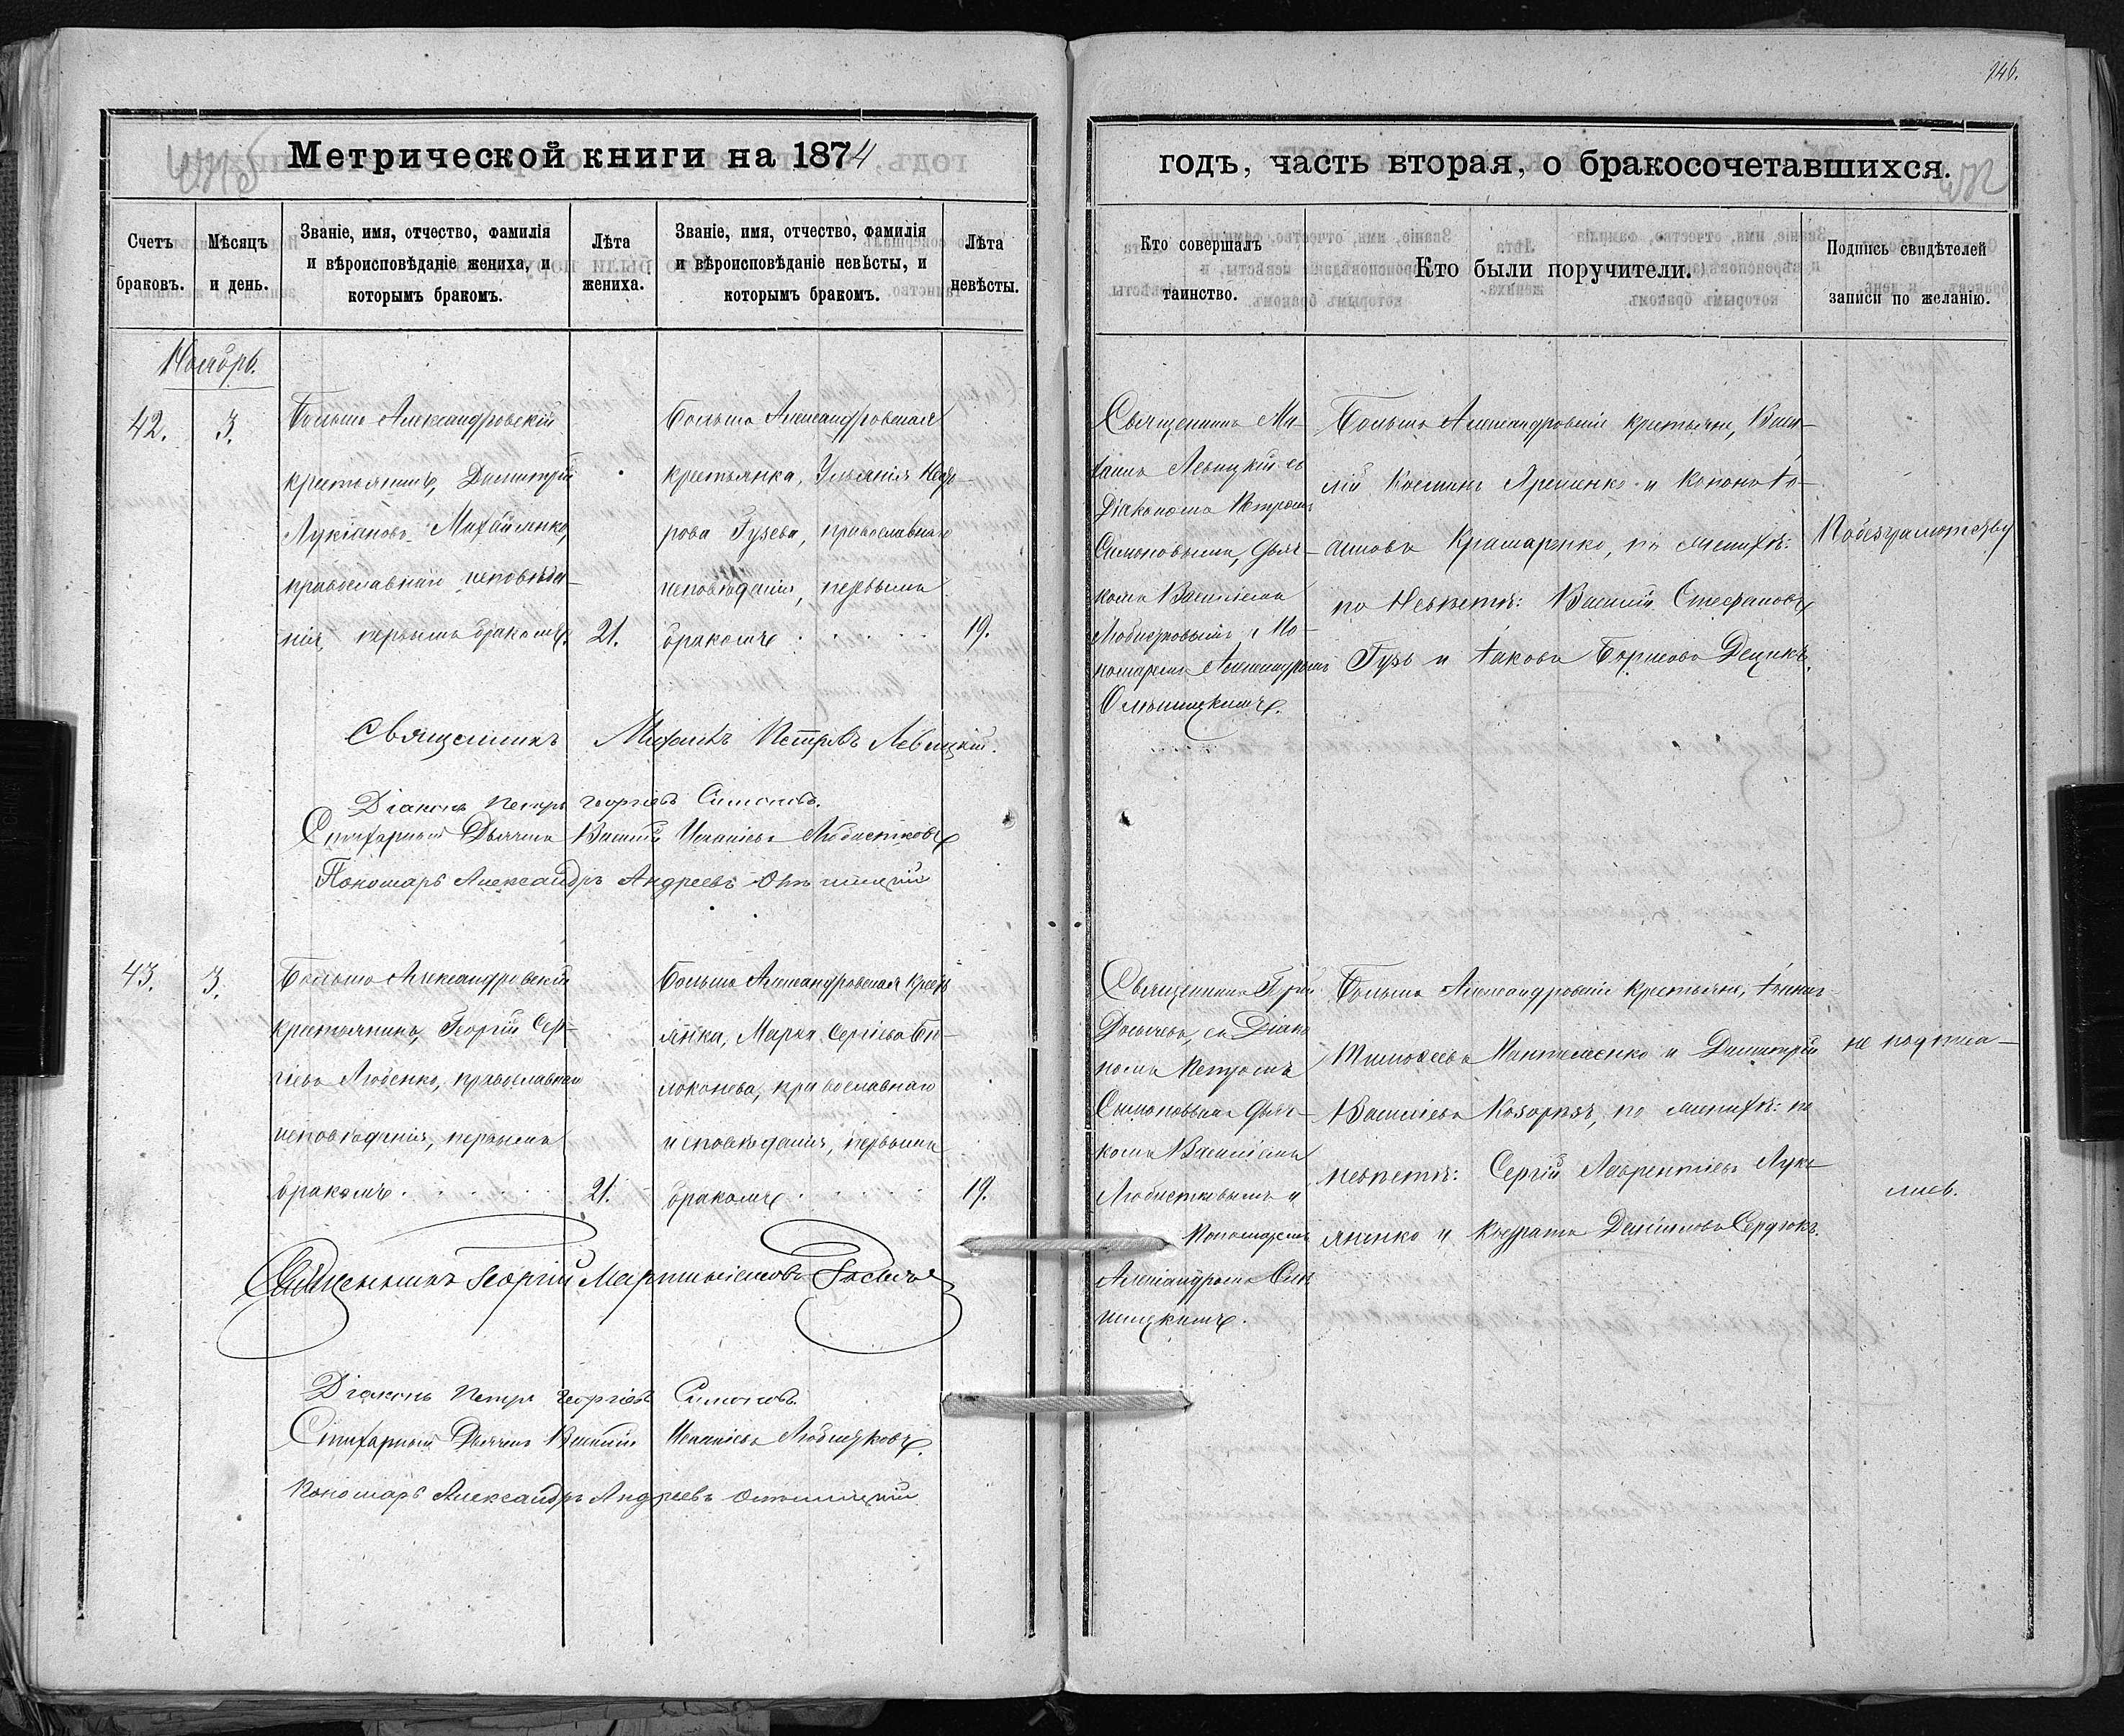 146.
Метрической книги на 1874
годъ, часть вторая, о бракосочетавшихся.
Счетъ браковъ.
Мѣсяцъ и день.
Званіе, имя, отчество, фамилія
и вѣроисповѣданіе жениха, и
которымъ бракомъ.
Лѣта
жениха.
Званіе, имя, отчество, фамилія
и вѣроисповѣданіе невѣсты, и
которымъ бракомъ.
Лѣта
невѣсты.
Кто совершалъ
таинство.
Кто были поручители.
Подпись свидѣтелей
записи по желанію.
Ноябрь.
42.
3.
Больше Александровскій
крестьянинъ, Димитрій
Лукіановъ Михайленко,
православнаго исповѣда-
нія, первымъ бракомъ.
21.
Больше Александровская
крестьянка, Ульянія
рова Гузева, православнаго
исповѣданія, первымъ
бракомъ
19.
Священникъ Ми-
хаилъ Левицкій съ
Діакономъ Петромъ
Симоновымъ, дьяч-
комъ Василіемъ
Любистковымъ и По-
номаремъ Александромъ
Больше Александровскіе крестьяне, Васи-
лій Косминъ Яременко и Кононъ
Крамаренко, по женихѣ:
по Невѣстѣ: Василій Стефановъ
Гузь и Іаковъ Борисовъ
По безграмотству
Священникъ Михаилъ Петровъ Левицкій.
Діаконъ Петръ Георгіевъ Симоновъ.
Стихарный Дьячекъ Василій Любистковъ
Пономарь Александръ Андреевъ
43.
3.
Больше Александровскій
крестьянинъ, Георгій Сер-
гіевъ Любенко, православнаго
исповѣданія, первымъ
бракомъ
21.
Больше Александровская крест
янка, Марья Сергіева Бѣ-
локонева, православнаго
исповѣданія, первымъ
бракомъ
19.
Священникъ
съ Діако
номъ Петромъ
Симоновымъ дьяч-
комъ Василіемъ
Любистковымъ и
Пономаремъ
Александромъ
Больше Александровскіе крестьяне,
Тимоѳеевъ Пантеленко и Димитрій
Василіевъ Козорѣзъ, по женихѣ: по
невѣстѣ: Сергій Лаврентіевъ Лукь
яненко и Кодратъ Даніиловъ Сердюкъ.
не подписа-
лись.
Священникъ Георгій Мартиніановъ
Діаконъ Петръ Георгіевъ Симоновъ.
Стихарный Дьячекъ Василій Любистковъ.
Пономарь Александръ Андреевъ